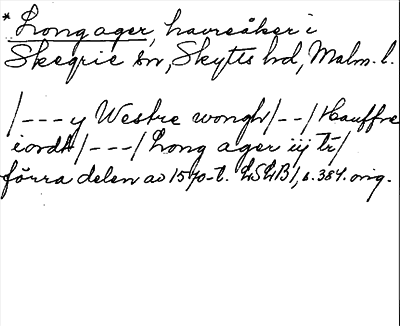 * Long ager, havreåker i
Skegrie sn, Skytts hd, Malm. l.
/---y Westre wongh/--/Hauffre
iordh/---/Long ager iij tr/
förra delen av 1570-t. LSLB 1, s. 384. orig.